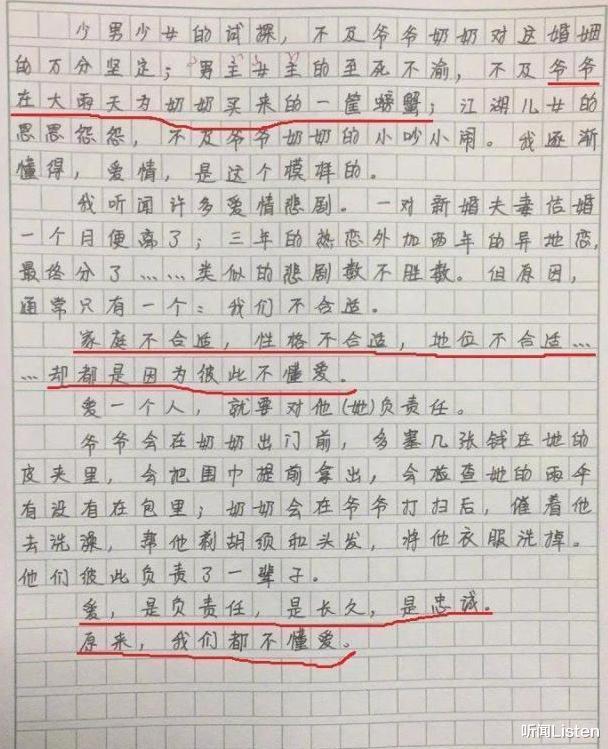 少男少女的试探，不及爷爷奶奶对这婚姻
的万分坚定；男主女主的至死不渝，不及爷爷
在大雨天为奶奶买来的一筐螃蟹；江湖儿女的
恩恩怨怨，不及爷爷奶奶的小吵小闹。我逐渐
懂得，爱情，是这个模样的。
我听闻许多爱情悲剧。一对新婚夫妻结婚
一个月便离了；三年的热恋外加两年的异地恋，
最终分了……类似的悲剧数不胜数。但原因，
通常只有一个：我们不合适。
家庭不合适，性格不合适，地位不合适…
…却都是因为彼此不懂爱。
爱一个人，就要对他(她)负责任。
爷爷会在奶奶出门前，多塞几张钱在她的
皮夹里，会把围巾提前拿出，会检查她的雨伞
有没有在包里；奶奶会在爷爷打扫后，催着他
去洗澡，帮他剃胡须和头发，将他衣服洗掉。
他们彼此负责了一辈子。
爱，是负责任，是长久，是忠诚。
原来，我们都不懂爱。
听闻Listen